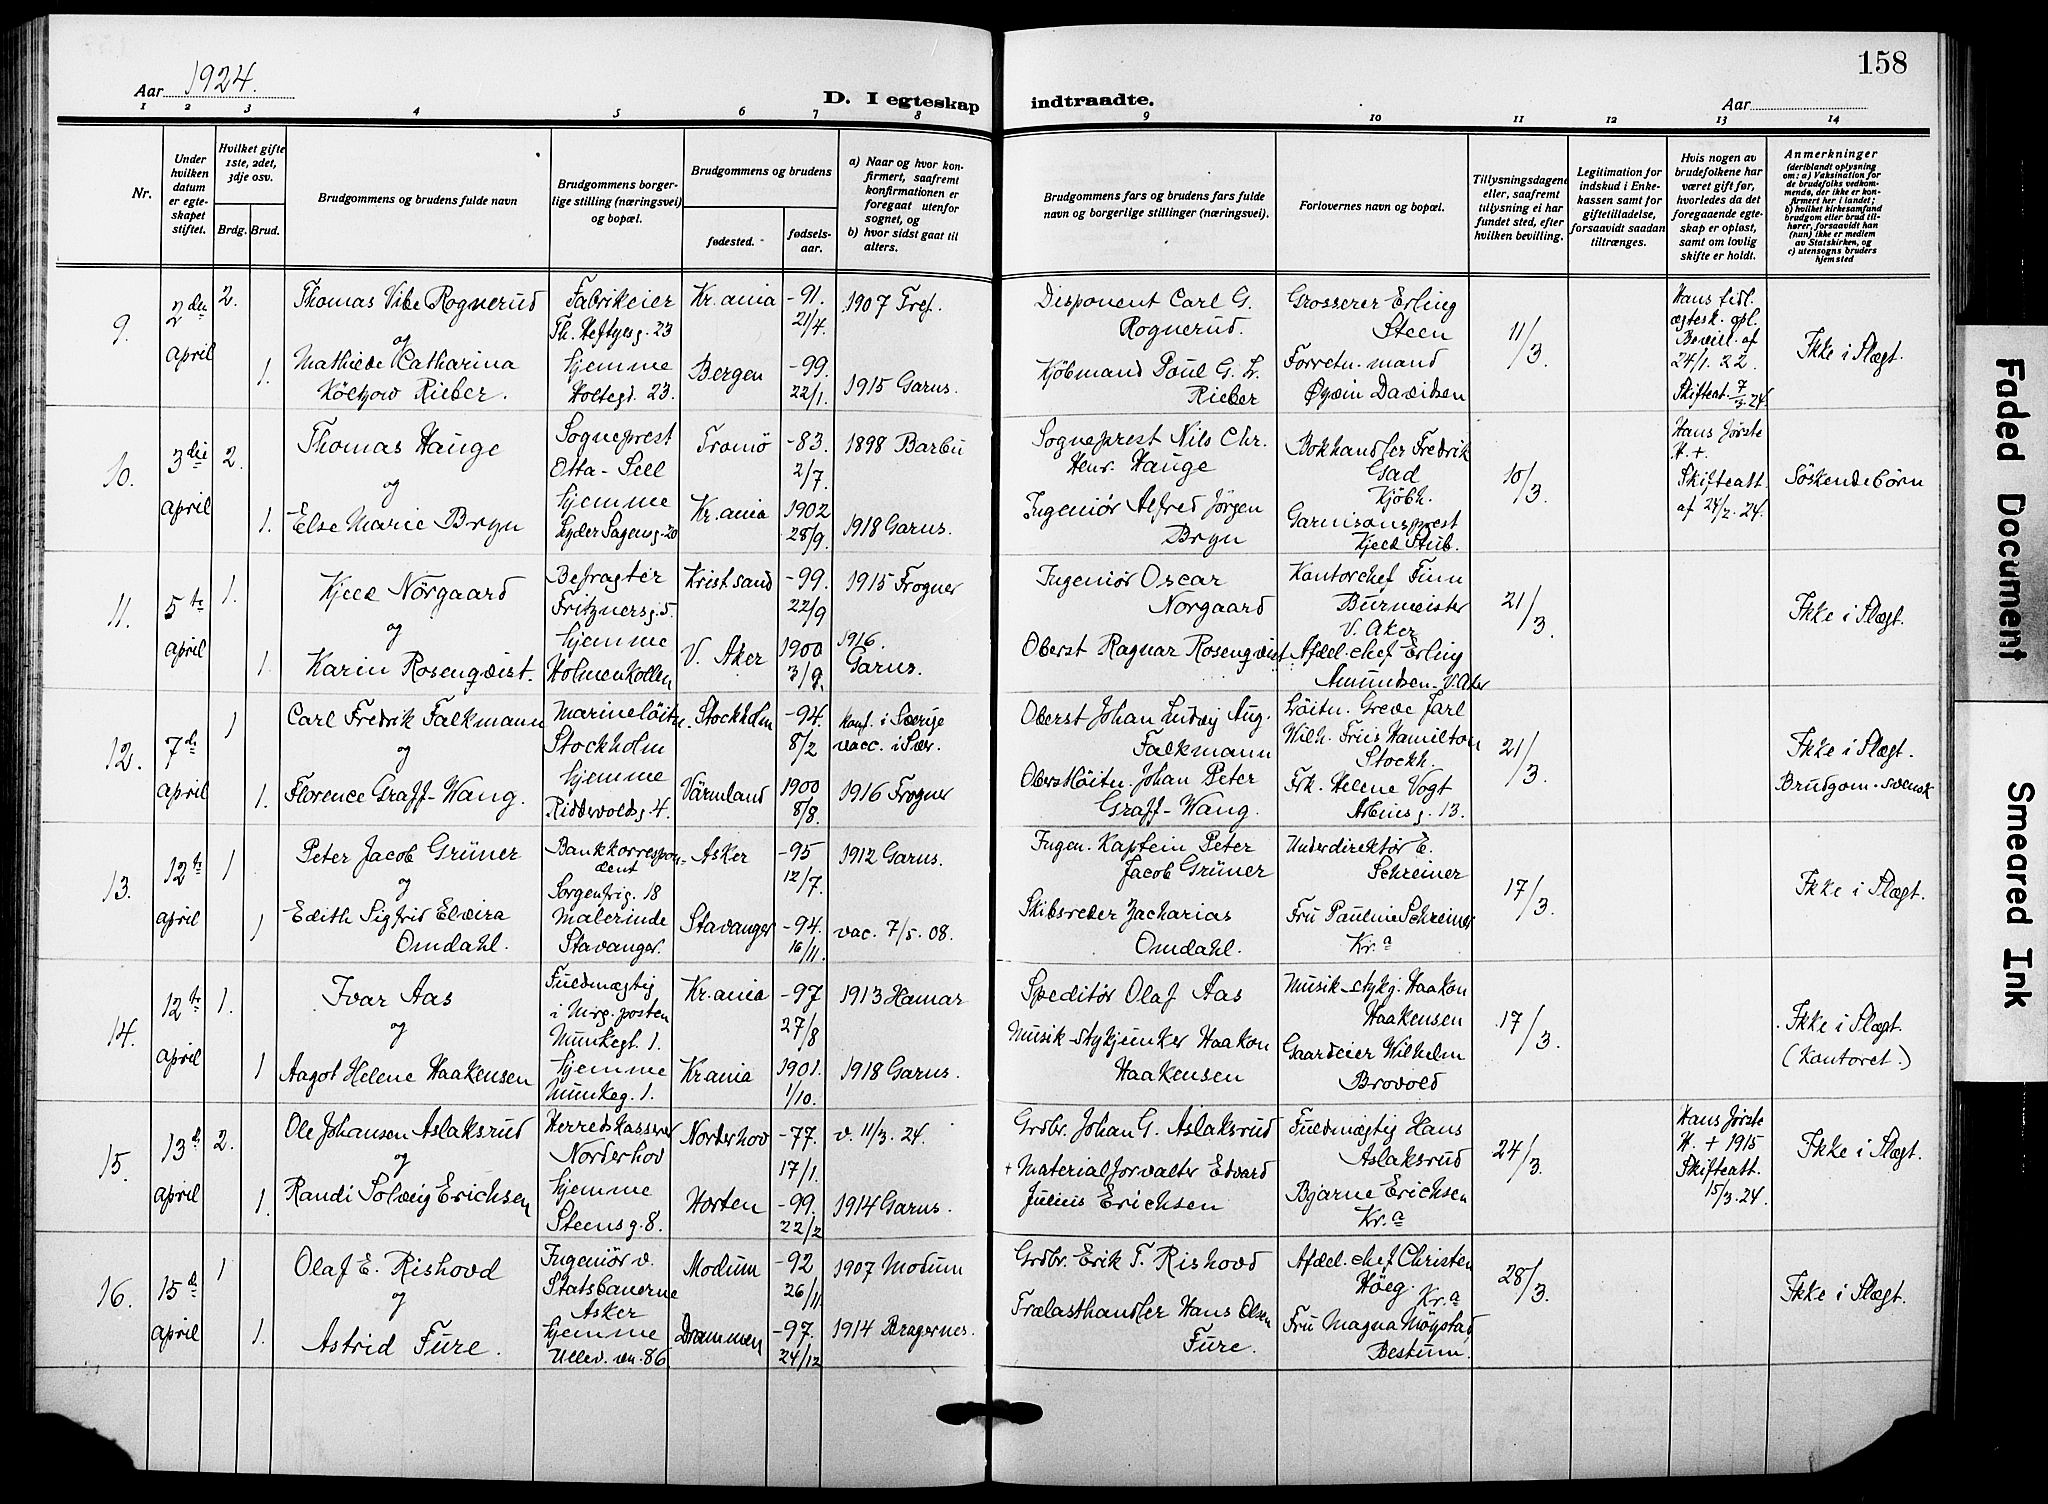 158
Aar 1924.
D. I egteskap indtraadte.
Aar
1 2 3 4 5 6 7 8 9 10 11 12 13 14
Nr.
Under hvilken datum er egteskapet stiftet.
Hvilket gifte 1ste, 2det, 3dje osv.
Brdg. Brud.
Brudgommens og brudens fulde navn
Brudgommens borgerlige stilling (næringsvei) og bopæl.
Brudgommens og brudens
fødested.
fødselsaar.
a) Naar og hvor konfirmert, saafremt konfirmationen er foregaat utenfor sognet, og
b) hvor sidst gaat til alters.
Brudgommens fars og brudens fars fulde navn og borgerlige stillinger (næringsvei).
Forlovernes navn og bopæl.
Tillysningsdagene eller, saafremt tillysning ei har fundet sted, efter hvilken bevilling.
Legitimation for indskud i Enkekassen samt for giftetilladelse, forsaavidt saadan tiltrænges.
Hvis nogen av brudefolkene har været gift før, hvorledes da det foregaaende egteskap er opløst, samt om lovlig skifte er holdt.
Anmerkninger
(deriblandt oplysning om: a) Vaksination for de brudefolks vedkommende, der ikke er konfirmert her i landet; b) hvilket kirkesamfund brudgom eller brud tilhører, forsaavidt han (hun) ikke er medlem av Statskirken, og c) utensogns bruders hjemsted
9. 2den April 2. 1.
Thomas Vibe Rognerud
og
Mathilde Catharina
Költzow Rieber.
Fabrikeier
Th. Heftyesg. 23
hjemme
Holtegd. 23.
Kr.ania
Bergen
-91.
21/4.
-99.
22/1.
1907 Tref.
1915 Garns.
Disponent Carl G.
Rognerud.
Kjöbmand Poul G. L.
Rieber
Grosserer Erling
Steen
Forretn. mand
Øyvin Davidsen
11/3.
Hans tidl.
ægtesk. opl.
Bevill. af
24/1. 22.
Skifteat. 7/3. 24.
Ikke i Slægt.
10. 3die April 2. 1.
Thomas Hauge
og
Else Marie Bryn
Sogneprest
Otta-Sell
hjemme
Lyder Sagensg. 20
Tromö
Kr.ania
-83.
2/7.
1902
28/9.
1898 Barbu
1918 Garns.
Sogneprest Nils Chr.
Henr. Hauge
Ingeniör Alfred Jörgen
Bryn
Bokhandler Fredrik
Gad
Kjöbh.
Garnisonsprest
Kjell Stub.
10/3.
Hans förste
H. +.
Skifteatt.
af 24/2. 24.
Söskendebörn
11. 5te April 1. 1.
Kjell Nörgaard
og
Karin Rosenqvist.
Befragter
Fritznersg. 5.
hjemme
Holmenkollen
Kristsand
V. Aker
-99.
22/9
1900
3/9.
1915 Frogner
1916.
Garns.
Ingeniör Oscar
Nörgaard
Oberst Ragnar Rosenqvist
Kontorchef Finn
Burmeister
V. Aker
Afdel. chef Erling
Amundsen. V. Aker
21/3.
Ikke i Slægt.
12. 7de April 1 1.
Carl Fredrik Falkmann
og
Florence Graff-Wang.
Marinelöitn.
Stockholm
hjemme
Riddervoldsg. 4.
Stockholm
Värmland
-94.
8/2
1900
8/8.
konf. i Sverige
vacc. i Sver.
1916 Frogner
Oberst Johan Ludvig Aug.
Falkmann
Oberstlöitn. Johan Peter
Graff-Wang.
Löitn. Greve Jarl
Wilh. Friis Hamilton
Stockh.
Frk. Helene Vogt
Arbinsg. 13.
21/3.
Ikke i Slægt.
Brudgom. svensk
13. 12te April 1 1
Peter Jacob Grüner
og
Edith Sigfrid Elvira
Omdahl.
Bankkorrespondent
Sorgenfrig. 18
Malerinde
Stavanger.
Asker
Stavanger
-95
12/7.
-94.
16/11.
1912 Garns.
vac. 7/5. 08.
Ingen. Kaptein Peter
Jacob Grüner
Skibsreder Zacharias
Omdahl.
Underdirektör E.
Schreiner
Fru Pauline Schreiner
Kr.a
17/3.
Ikke i Slægt.
14. 12te April 1. 1
Ivar Aas
og
Aagot Helene Haakensen
Fuldmægtig
i Mrg. posten
Munkegt. 1.
hjemme
Munkeg. 1.
Kr.ania
Krania
-97
27/8
1901.
1/10.
1913 Hamar
1918 Garns.
Speditör Olaf Aas
Musik-stykjunker Haakon
Haakensen
Musik-stykj. Haakon
Haakensen
Gaardeier Wilhelm
Brovold
17/3.
Ikke i Slægt.
(Kontoret.)
15. 13de April 2. 1.
Ole Johansen Aslaksrud
og
Randi Solveig Erichsen
Herredskasserer
Norderhov
hjemme
Steensg. 8.
Norderhov
Horten
-77.
17/1.
-99.
22/2
v. 11/3. 24.
1914 Garns.
Grdbr. Johan G. Aslaksrud
+ Materialforvalter Edvard
Julius Erichsen
Fuldmægtig Hans
Aslaksrud
Bjarne Erichsen
Kr.a
24/3.
Hans förste
H. + 1915
Skifteatt.
15/3. 24.
Ikke i Slægt.
16. 15de April 1 1.
Olaf E. Rishovd
og
Astrid Fure.
Ingeniör v.
Statsbanerne
Asker
hjemme
Ullev. vn. 86
Modum
Drammen
-92
26/11
-97.
24/12
1907 Modum
1914 Bragernes.
Grdbr. Erik T. Rishovd
Trælasthandler Hans Olsen
Fure.
Afdel. chef Christen
Höeg. Kr.a
Fru Magna Möystad
Bestum.
28/3.
Ikke i Slægt.
Faded Document
Smeared Ink